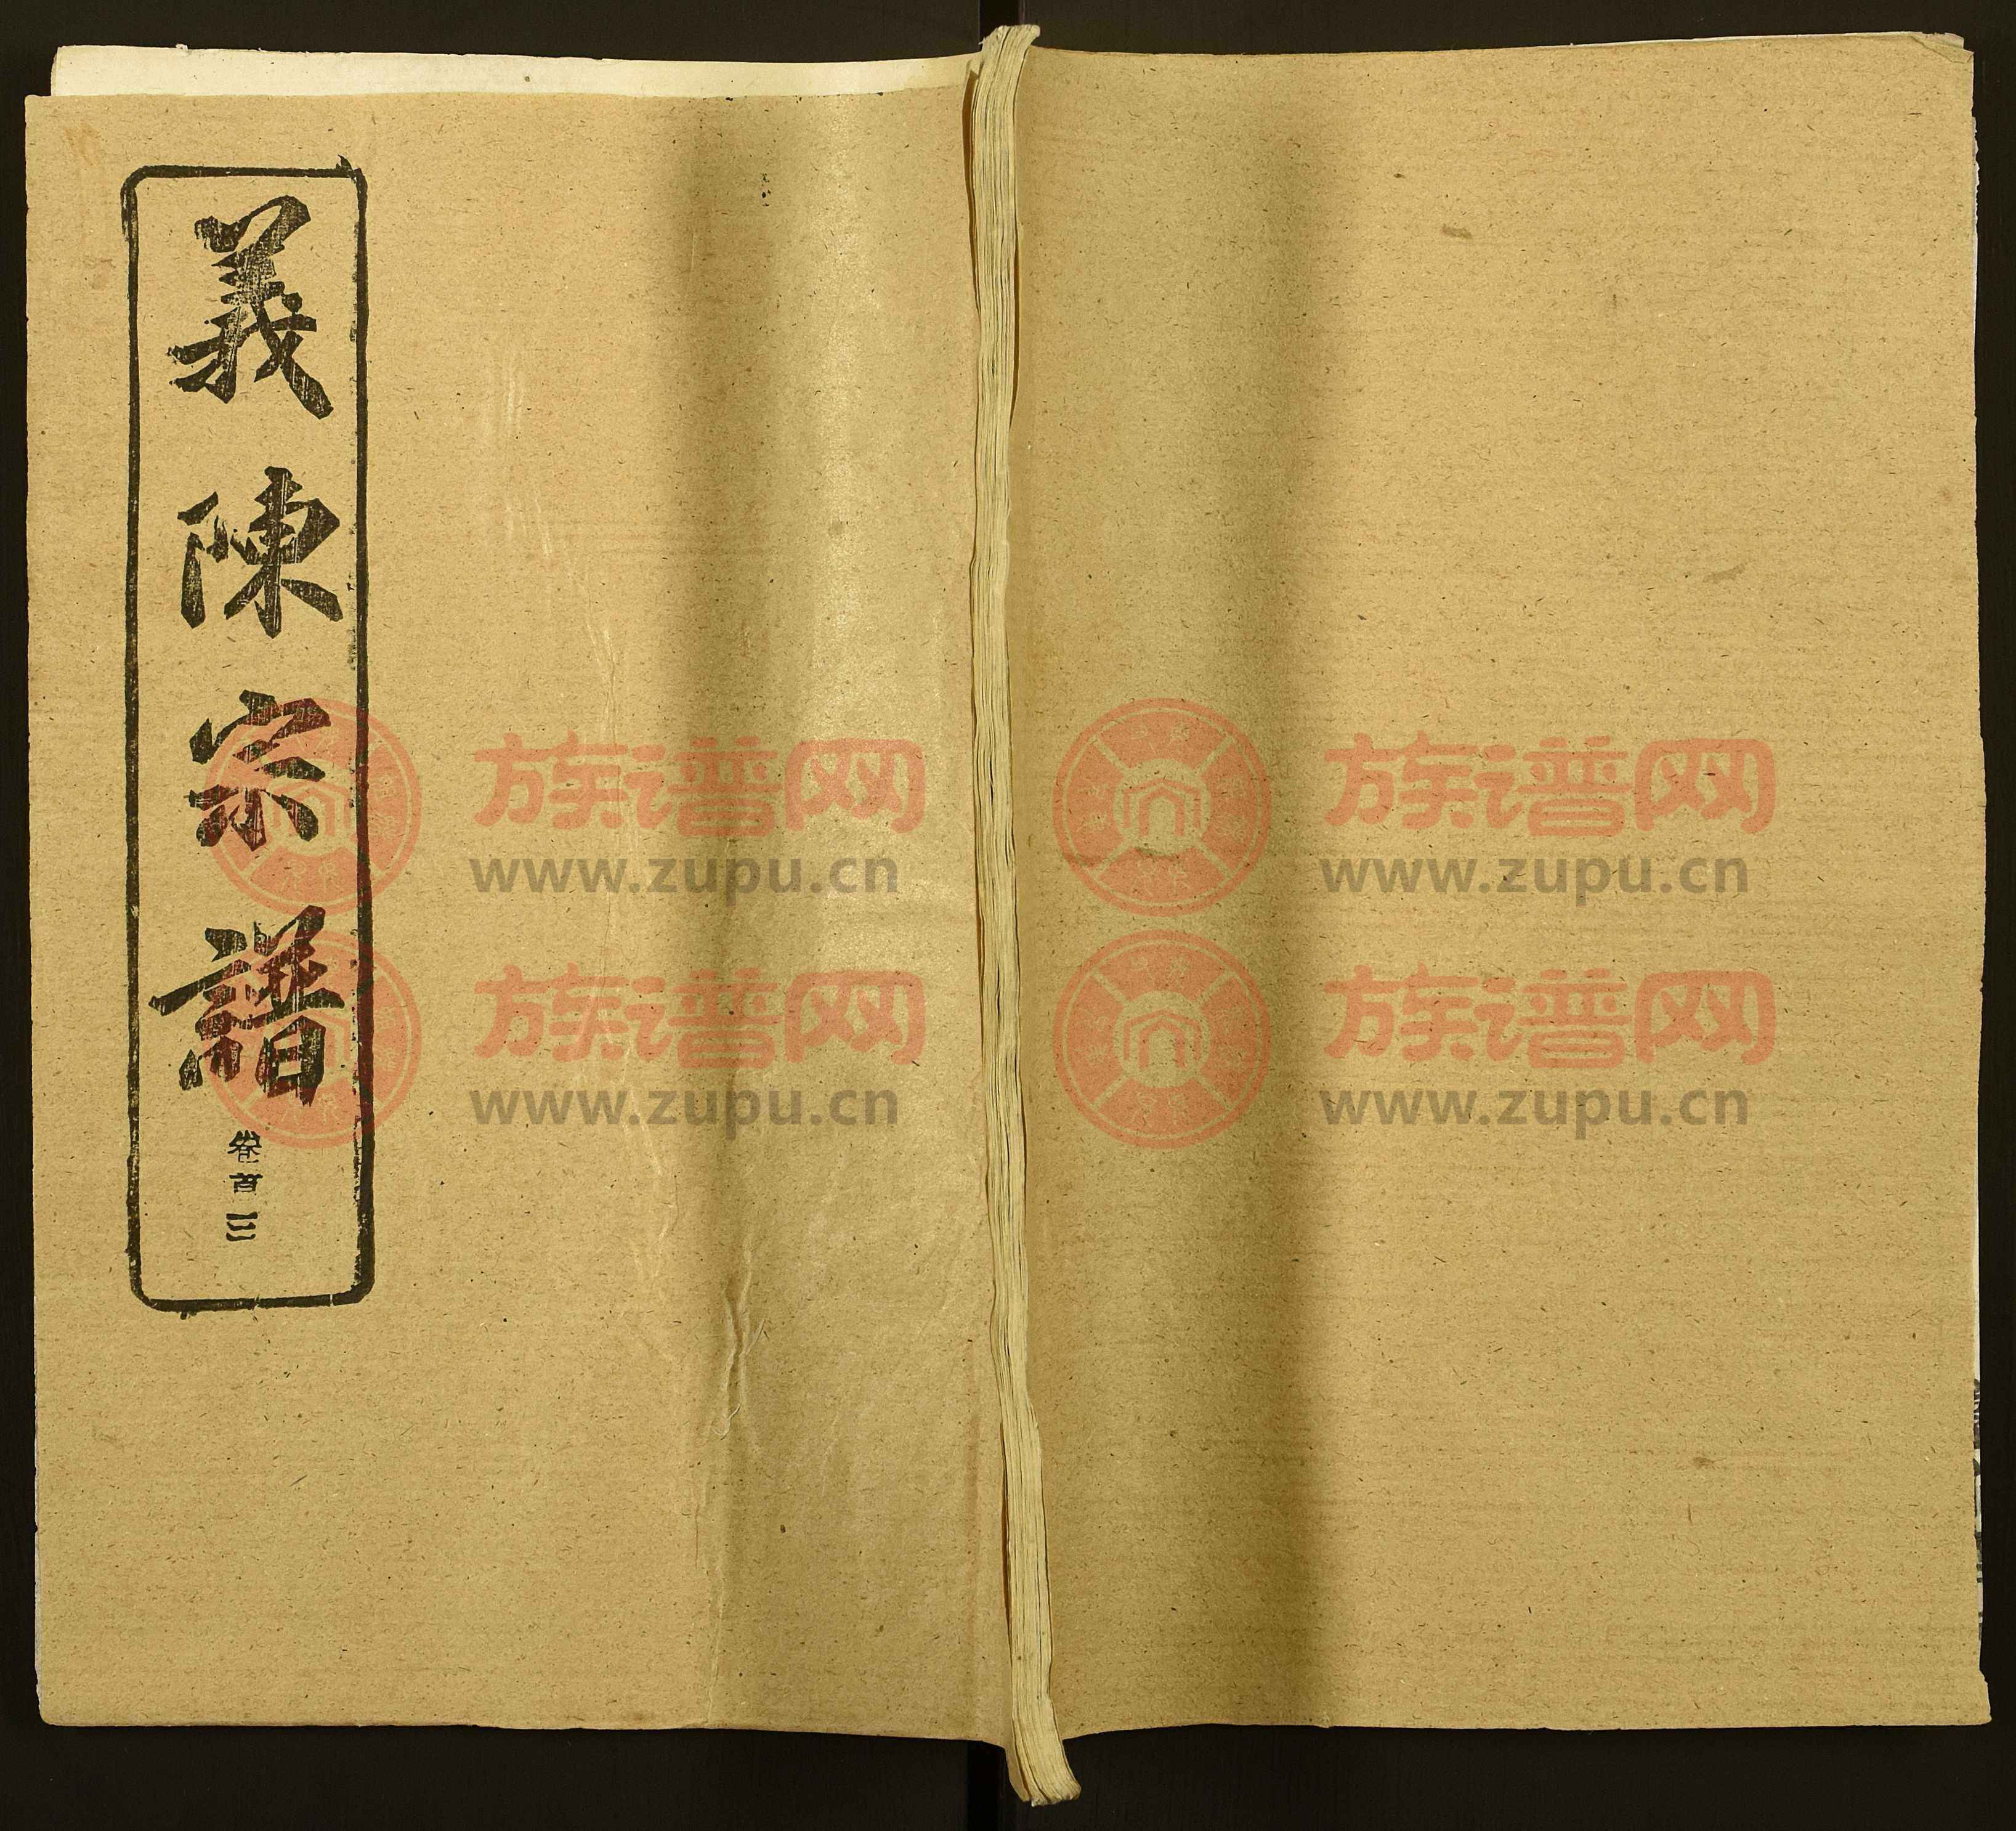 義陳宗譜
卷首三
族谱网
www.zupu.cn
族谱网
www.zupu.cn
族谱网
www.zupu.cn
族谱网
www.zupu.cn